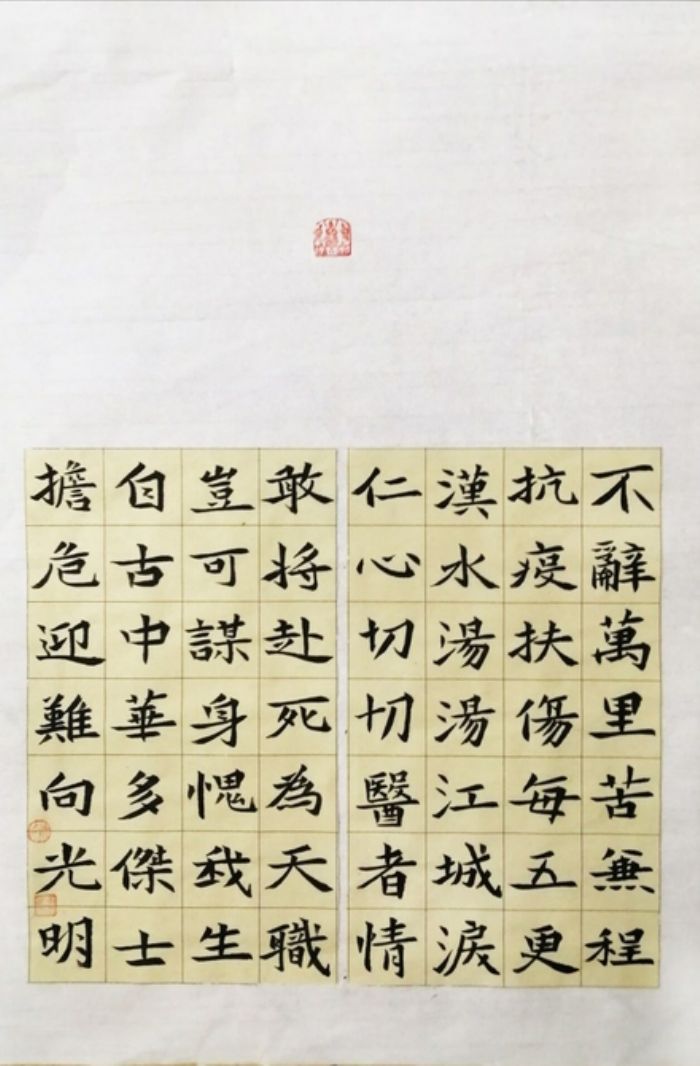 不辭萬里苦無程
抗疫扶傷每五更
漢水湯湯江城淚
仁心切切醫者情
敢將赴死為天職
豈可謀身愧我生
自古中華多傑士
擔危迎難向光明